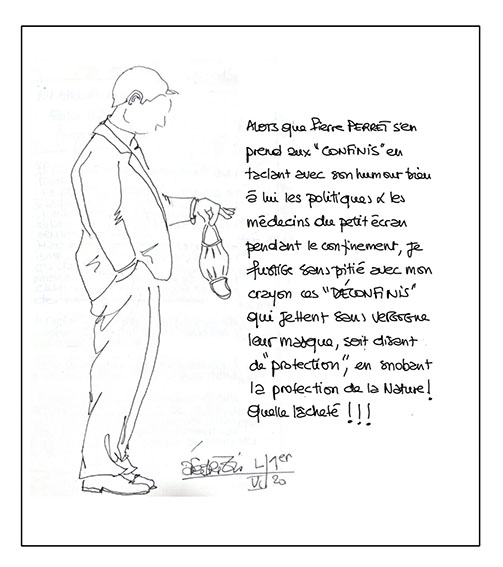 ALORS que Pierre PERRET s'en
prend aux "CONFINIS" en
taclant avec son humour bien
à lui les politiques & les
médecins du petit écran
pendant le confinement, je
fustige sans pitié avec mon
crayon ces "DÉCONFINIS"
qui jettent sans vergogne
leur masque, soit disant
de "protection", en snobant
la protection de la Nature!
Quelle lâcheté !!!
L/1er
VI/20